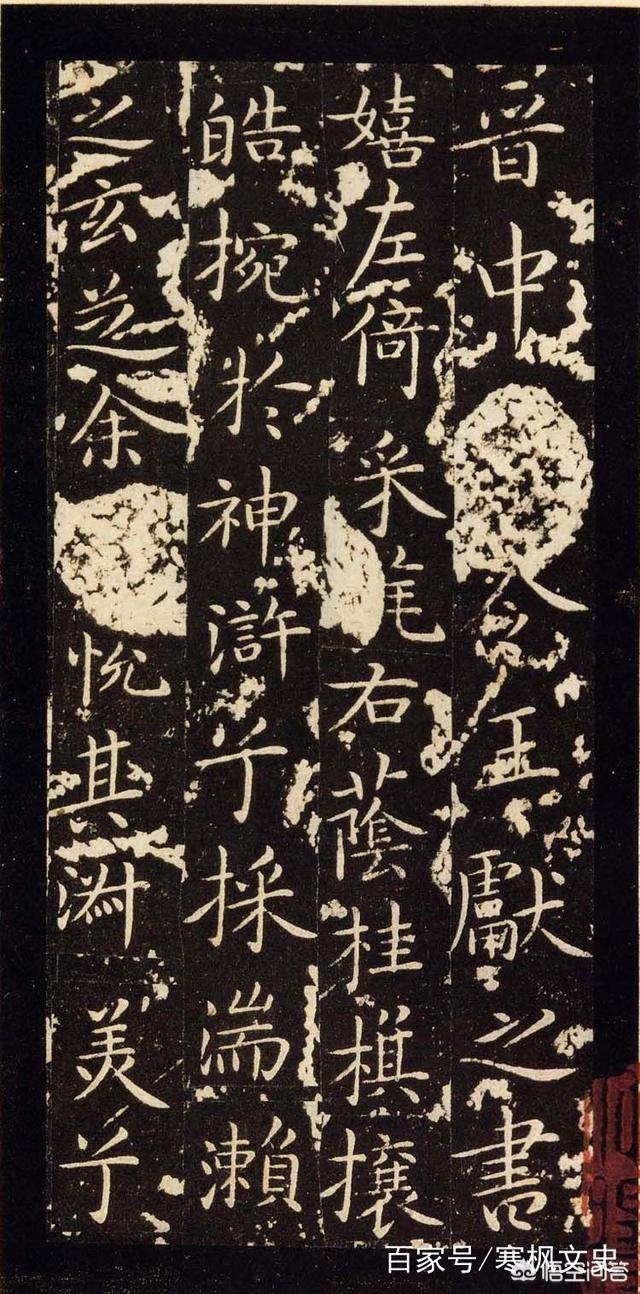 晉中令王獻之書
嬉左倚采旄右蔭桂旗攘
皓捥於神滸兮採湍瀨
之玄芝余悅其淑美兮
百家号/寒枫文史
悟空问答